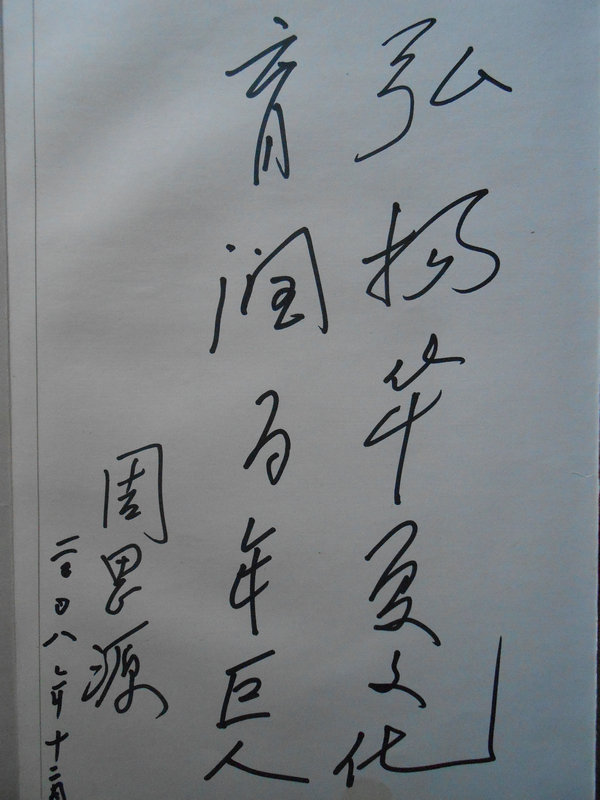 弘扬华夏文化
育润百年巨人
周思源
二〇〇八年十二月